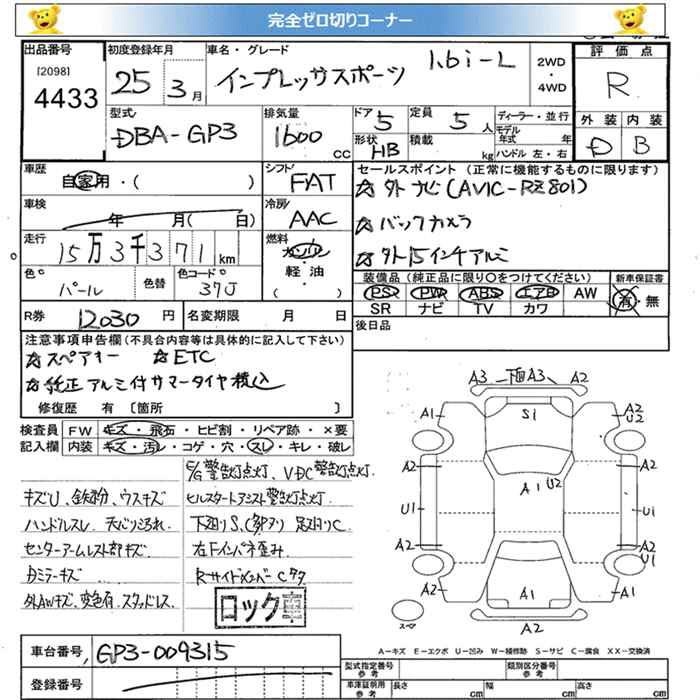 完全ゼロ切りコーナー
出品番号 初度登録年月 車名・グレード 評価点
[2098] 4433 25 3月 インプレッサスポーツ 1.6i-L 2WD・4WD R
型式 排気量 ドア 定員 ディーラー・並行 外装 内装
DBA-GP3 1600CC 5 5人 モデル年式 年 D B
形状 HB 積載 kg ハンドル 左・右
車歴 シフト セールスポイント(正常に機能するものに限ります)
自家用・( ) FAT ☆外ナビ(AVIC-RZ801)
車検 冷房 ☆バックカメラ
年 月( 日) AAC ☆外15インチアルミ
走行 燃料
15万3千371km ガソリン・軽油・( )
色 色替 色コード 装備品(純正品に限り○をつけてください) 新車保証書
パール 37J PS PW ABS エアB AW 有・無
SR ナビ TV カワ
R券 12030円 名変期限 月 日 後日品
注意事項申告欄(不具合内容等は具体的に記入して下さい)
☆スペアキー ☆ETC
☆純正アルミ付サマータイヤ積込
修復歴 有〔箇所 〕
検査員記入欄 FW キズ・飛石・ヒビ割・リペア跡・×要
内装 キズ・汚レ・コゲ・穴・スレ・キレ・破レ
E/G警告灯点灯、VDC警告灯点灯.
キズU、鉄粉、ウスキズ ヒルスタートアシスト警告灯点灯.
ハンドルスレ、天バリ汚れ. 下廻りS、 足廻りC
センターアームレスト部キズ 右Fインパネ歪み
Rサイドメンバー
外AWキズ、変色有.スタッドレス.
ロック車
A3 下面A3 A2
A1 S1 A2 U2
A2 A1 U2 A2
U1 U1
A2 A2 U1
A1 A1 A1
スペア A2
A-キズ E-エクボ U-凹み W-補修跡 S-サビ C-腐食 XX-交換済
車台番号 GP3-009315
登録番号
型式指定番号 参考 類別区分番号 参考
車庫証明用 参考 長さ cm 幅 cm 高さ cm